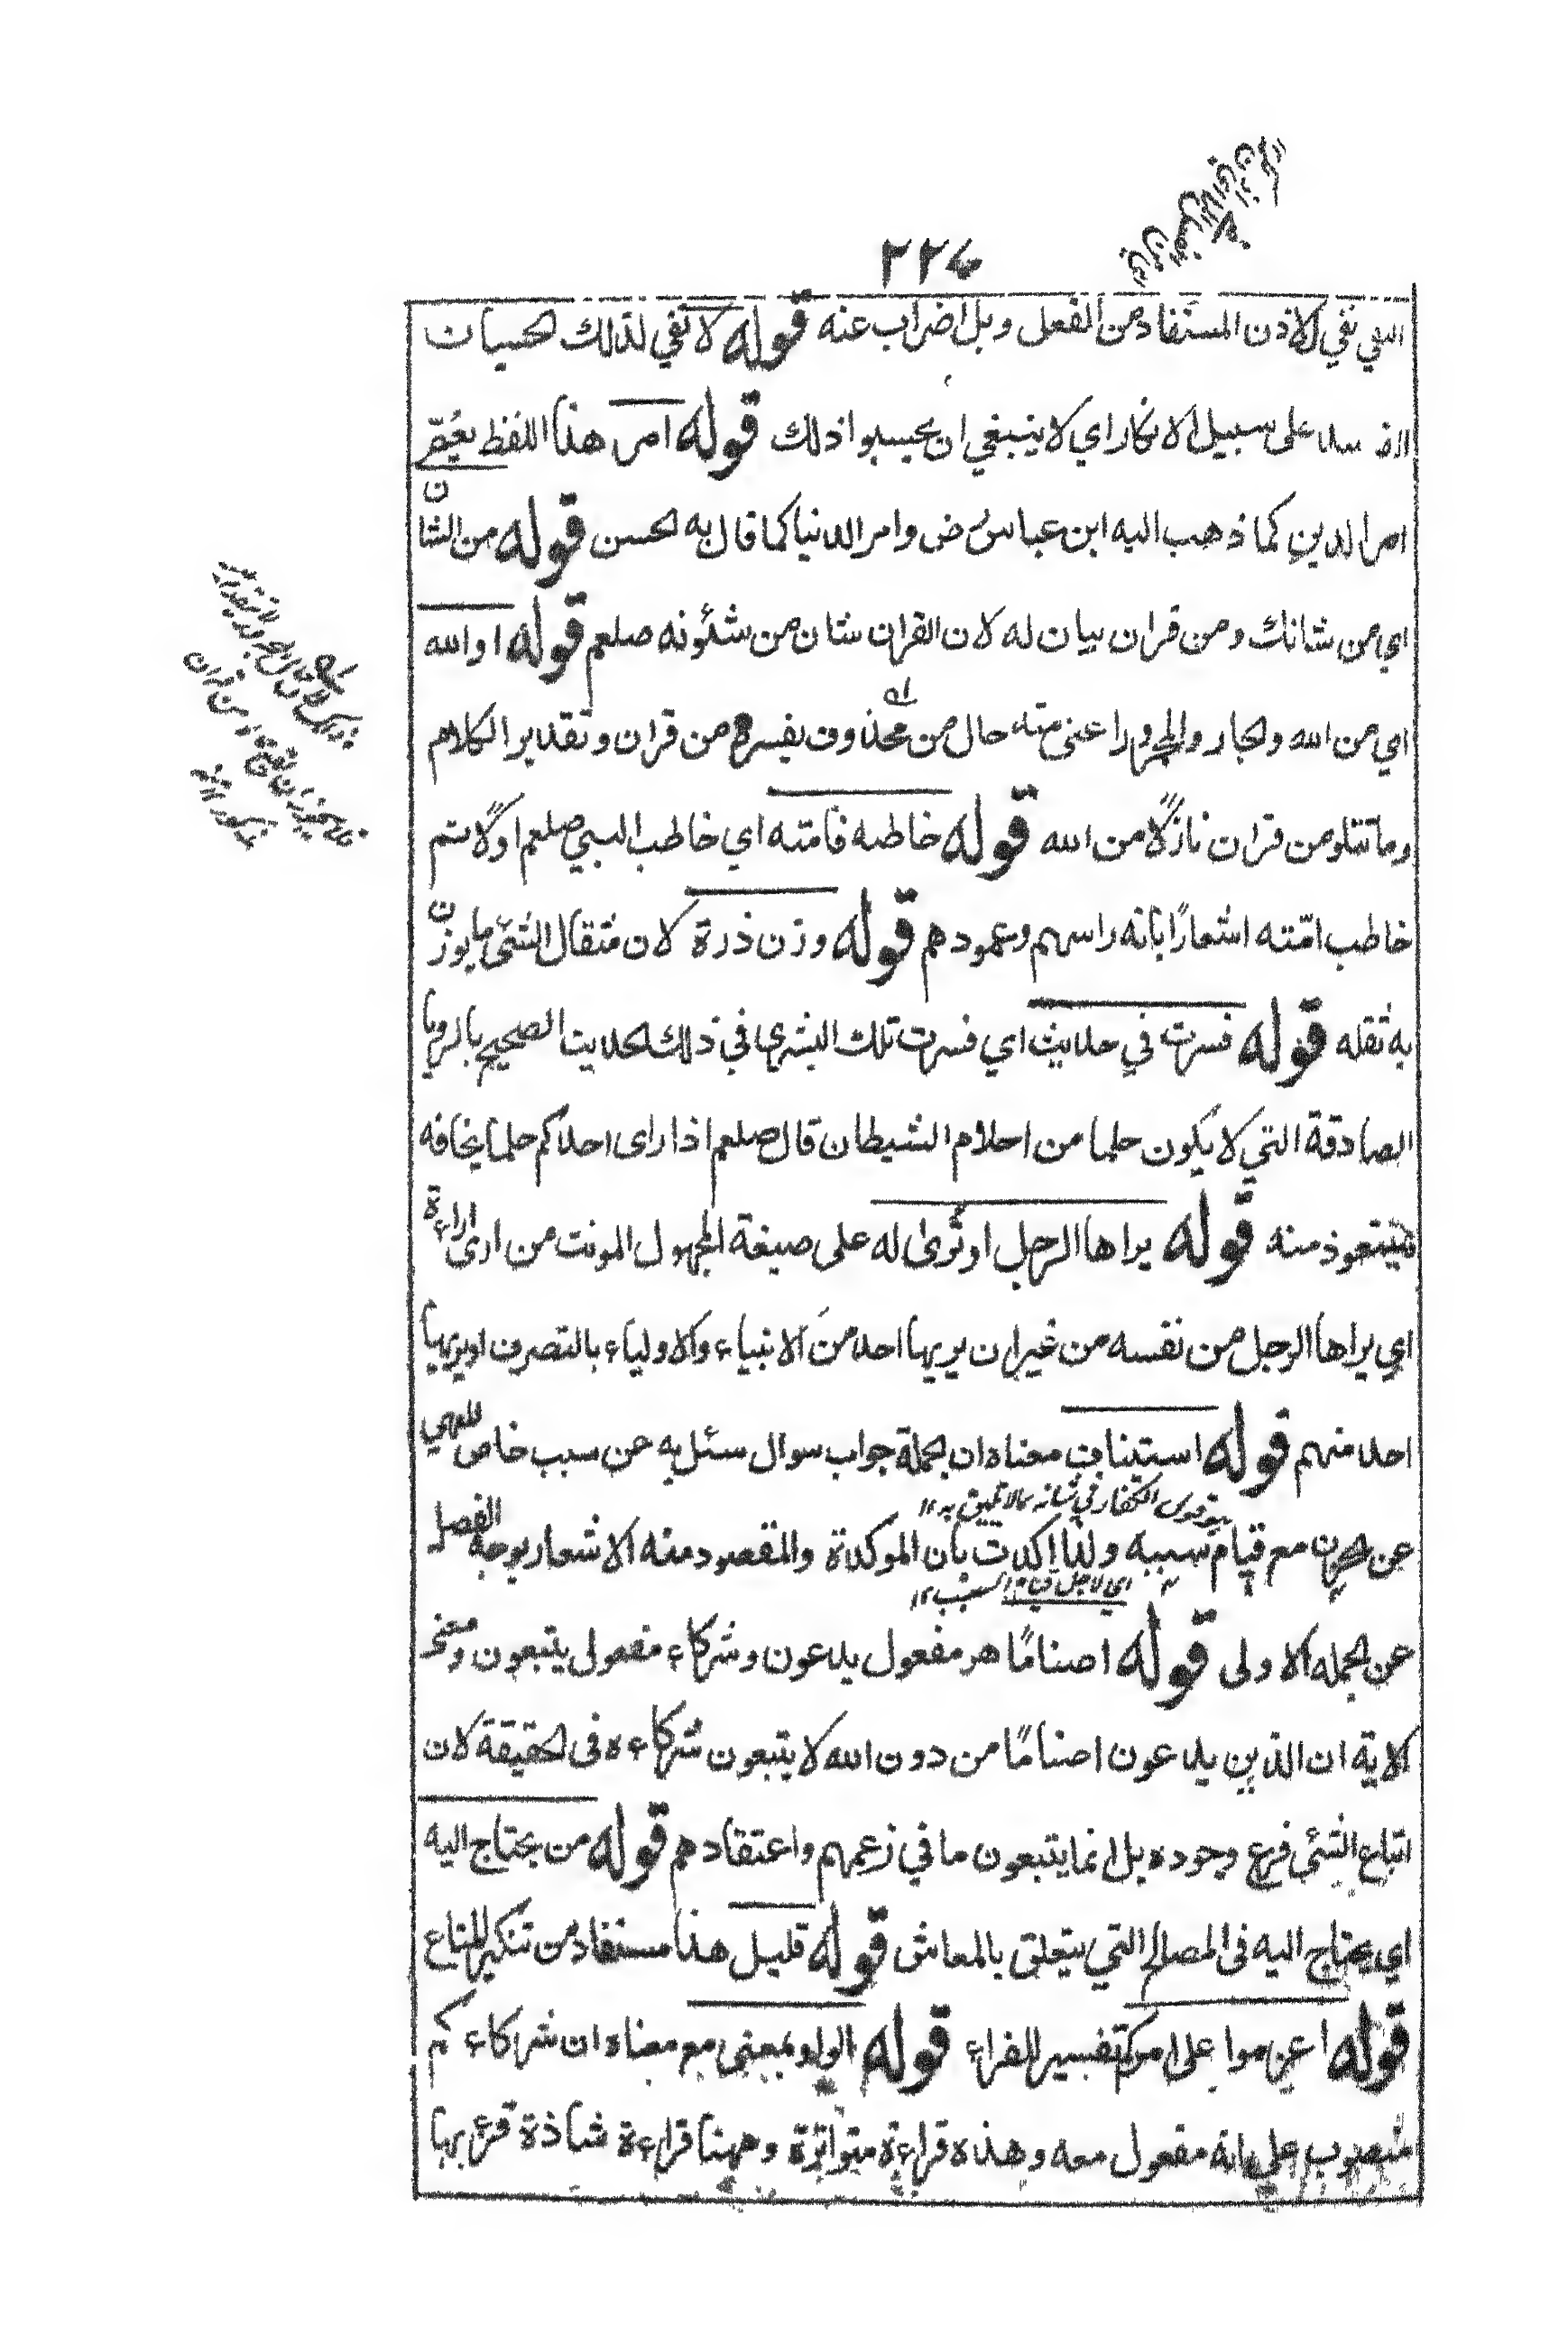 ٢٢٧
النفي نفي الاذن المستفاد من الفعل وبل اضراب عنه قوله لا نفي لذلك الحسبان
على سبيل الانكار اي لا ينبغي ان يحسبوا ذلك قوله امر هذا اللفظ
امر الدين كما ذهب اليه ابن عباس رض وامر الدنيا كما قال به الحسن قوله من الشان
اي من شانك ومن قران بيان له لان القران شان من شئونه صلعم قوله او الله
اي من الله والجار والمجرور اعنى منه حال من محذوف يفسره من قران وتقدير الكلام
وما تتلو من قران نازلًا من الله قوله خاطبه فامته اي خاطب النبي صلعم اولًا ثم
خاطب امّته اشعارًا بانه راسهم وعمودهم قوله وزن ذرة لان مثقال الشئ ما يوزن
به ثقله قوله فسرت في حديث اي فسرت تلك البشرى في ذلك الحديث الصحيح بالرويا
الصادقة التي لا يكون حلما من احلام الشيطان قال صلعم اذا راى احدكم حلما يخافه
فليتعوذ منه قوله يراها الرجل او تُرى له على صيغة المجهول المونث من ارى اراءة
اي يراها الرجل من نفسه من غير ان يريها احد من الانبياء والاولياء بالتصرف او يريها
احد منهم قوله استيناف معناه ان الجملة جواب سوال سئل به عن سبب خاص للنهي
عن الحزن مع قيام سببه ولذا اكدت بان الموكدة والمقصود منه الاشعار بوجه الفصل
عن الجمله الاولى قوله اصنامًا هو مفعول يدعون وشركاء مفعولى يتبعون ومعنى
الاية ان الذين يدعون اصنامًا من دون الله لا يتبعون شركاءه فى الحقيقة لان
اتباع الشئى فرع وجوده بل انما يتبعون ما في زعمهم واعتقادهم قوله من يحتاج اليه
اي يحتاج اليه فى المصالح التي يتعلق بالمعاش قوله قليل هذا مستفاد من تنكير المتاع
قوله اعزموا على امركم تفسير للفراء قوله الواو بمعنى مع معناه ان شركاءكم
منصوب على انه مفعول معه وهذه قراءة متواترة وههنا قراءة شاذة قرء بها